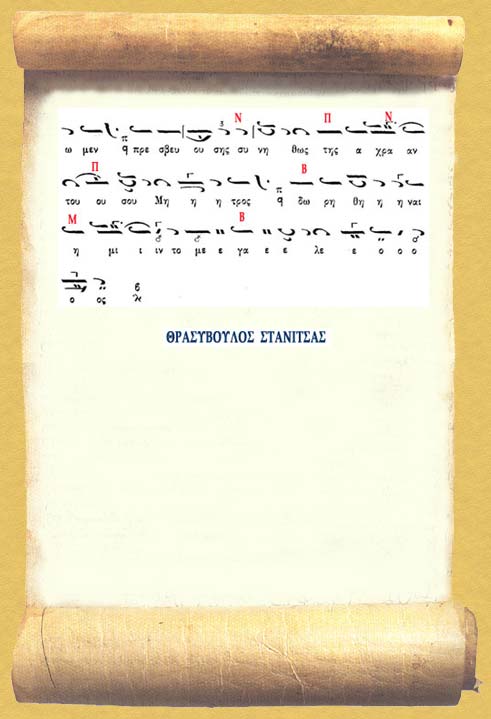 Ν Π Ν
ω μεν π q πρε σβευ ου σης συ νη θως της α χρα αν
Π Β
του ου σου Μη η η τρος π q δω ρη θη η η ναι
Μ Β
η μι ι ιν το με ε γα ε ε λε ε ο ο ο
ο ος β
ΘΡΑΣΥΒΟΥΛΟΣ ΣΤΑΝΙΤΣΑΣ